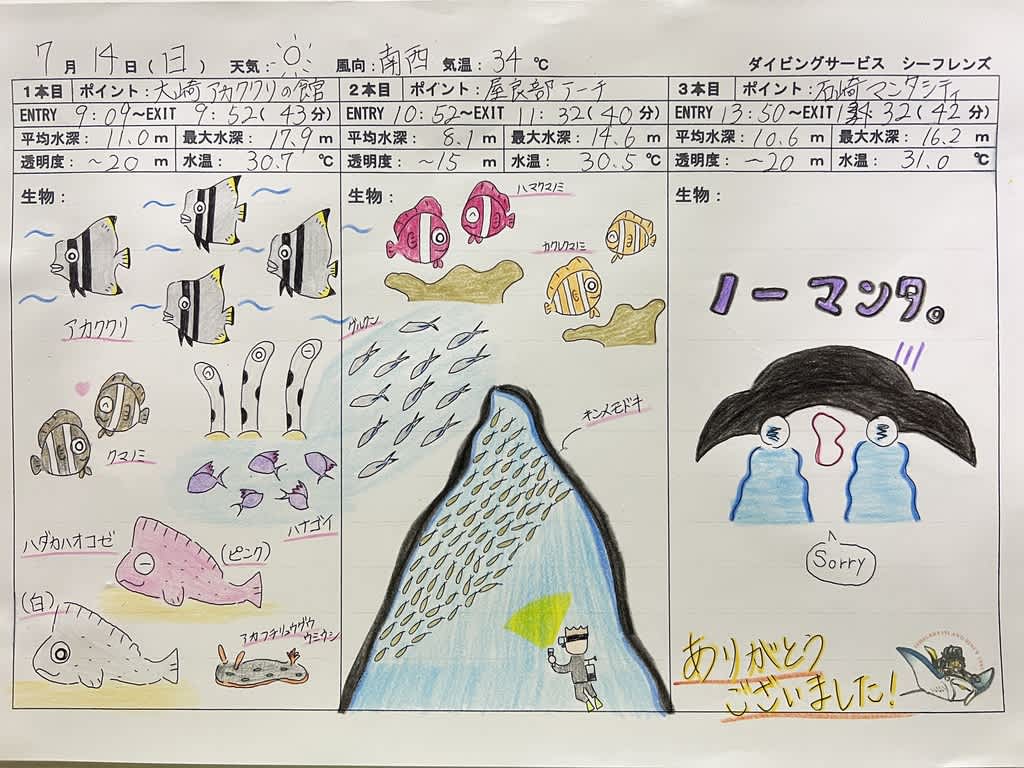 7月14日(日) 天気: 風向:南西 気温:34℃ ダイビングサービス シーフレンズ
1本目 ポイント:大崎アカククリの館
ENTRY 9:09~EXIT 9:52(43分)
平均水深:11.0m 最大水深:17.9m
透明度:~20m 水温:30.7℃
生物:
アカククリ
クマノミ
ハナゴイ
ハダカハオコゼ
(ピンク)
(白)
アカフチリュウグウ
ウミウシ
2本目 ポイント:屋良部アーチ
ENTRY 10:52~EXIT 11:32(40分)
平均水深:8.1m 最大水深:14.6m
透明度:~15m 水温:30.5℃
生物:
ハマクマノミ
カクレクマノミ
グルクン
キンメモドキ
3本目 ポイント:石崎マンタシティ
ENTRY 13:50~EXIT 14:32(42分)
平均水深:10.6m 最大水深:16.2m
透明度:~20m 水温:31.0℃
生物:
ノーマンタ。
Sorry
ありがとう
ございました!